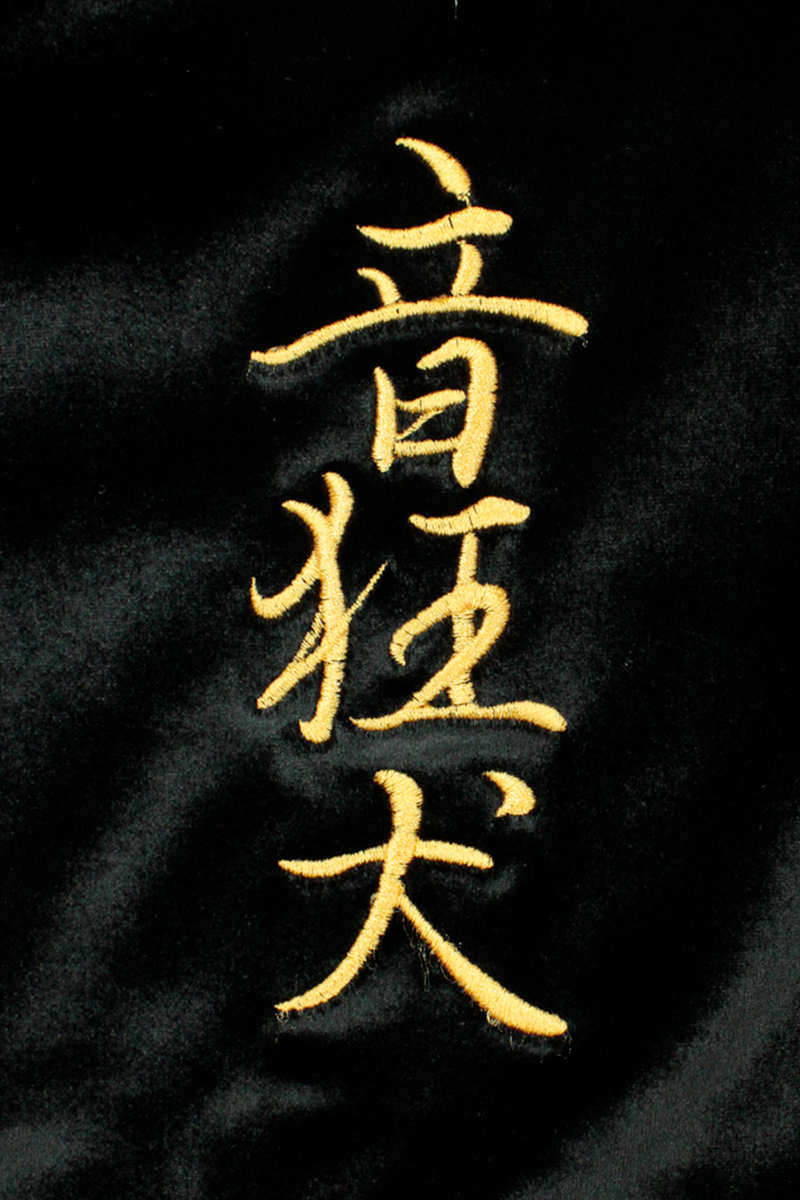 音狂犬